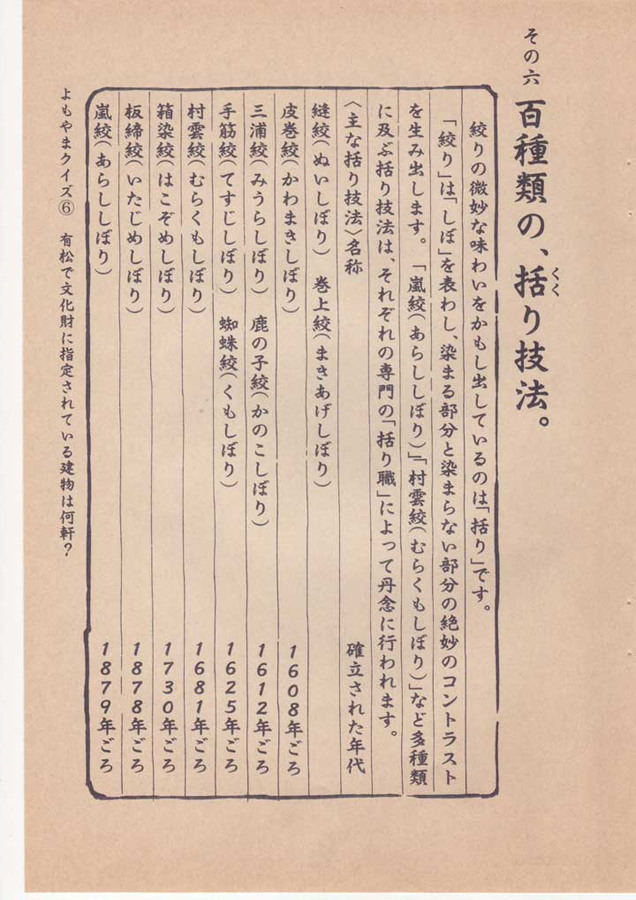 その六 百種類の、括り技法。
くく
絞りの微妙な味わいをかもし出しているのは「括り」です。
「絞り」は「しぼ」を表わし、染まる部分と染まらない部分の絶妙のコントラスト
を生み出します。「嵐絞(あらししぼり)」「村雲絞(むらくもしぼり)」など多種類
に及ぶ括り技法は、それぞれの専門の「括り職」によって丹念に行われます。
〈主な括り技法〉名称 確立された年代
縫絞(ぬいしぼり) 巻上絞(まきあげしぼり)
皮巻絞(かわまきしぼり) 1608年ごろ
三浦絞(みうらしぼり) 鹿の子絞(かのこしぼり) 1612年ごろ
手筋絞(てすじしぼり) 蜘蛛絞(くもしぼり) 1625年ごろ
村雲絞(むらくもしぼり) 1681年ごろ
箱染絞(はこぞめしぼり) 1730年ごろ
板締絞(いたじめしぼり) 1878年ごろ
嵐絞(あらししぼり) 1879年ごろ
よもやまクイズ⑥ 有松で文化財に指定されている建物は何軒?